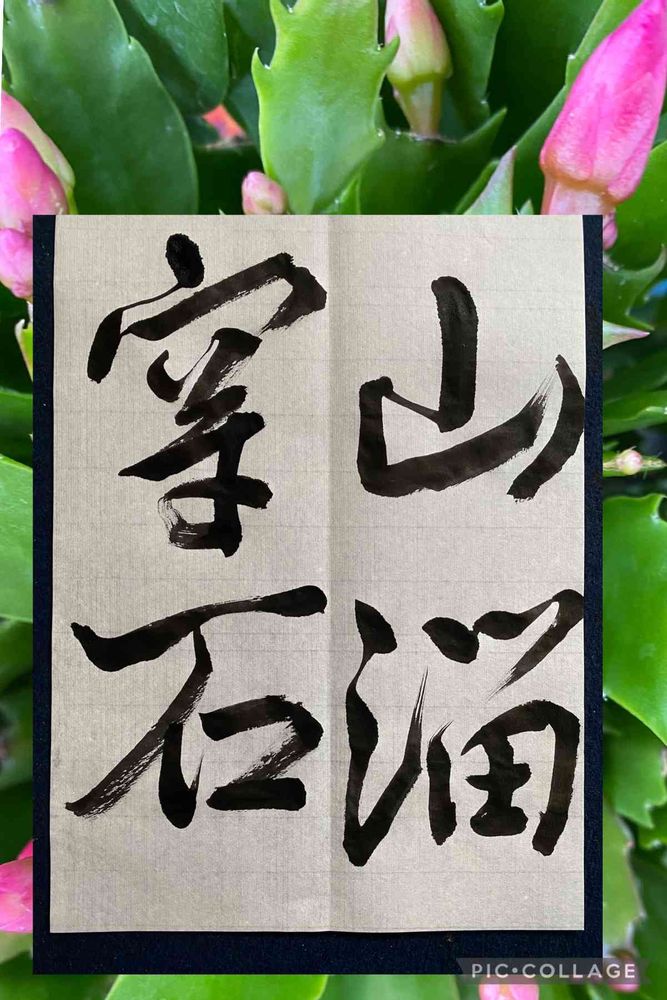 山溜
穿石
PIC•COLLAGE